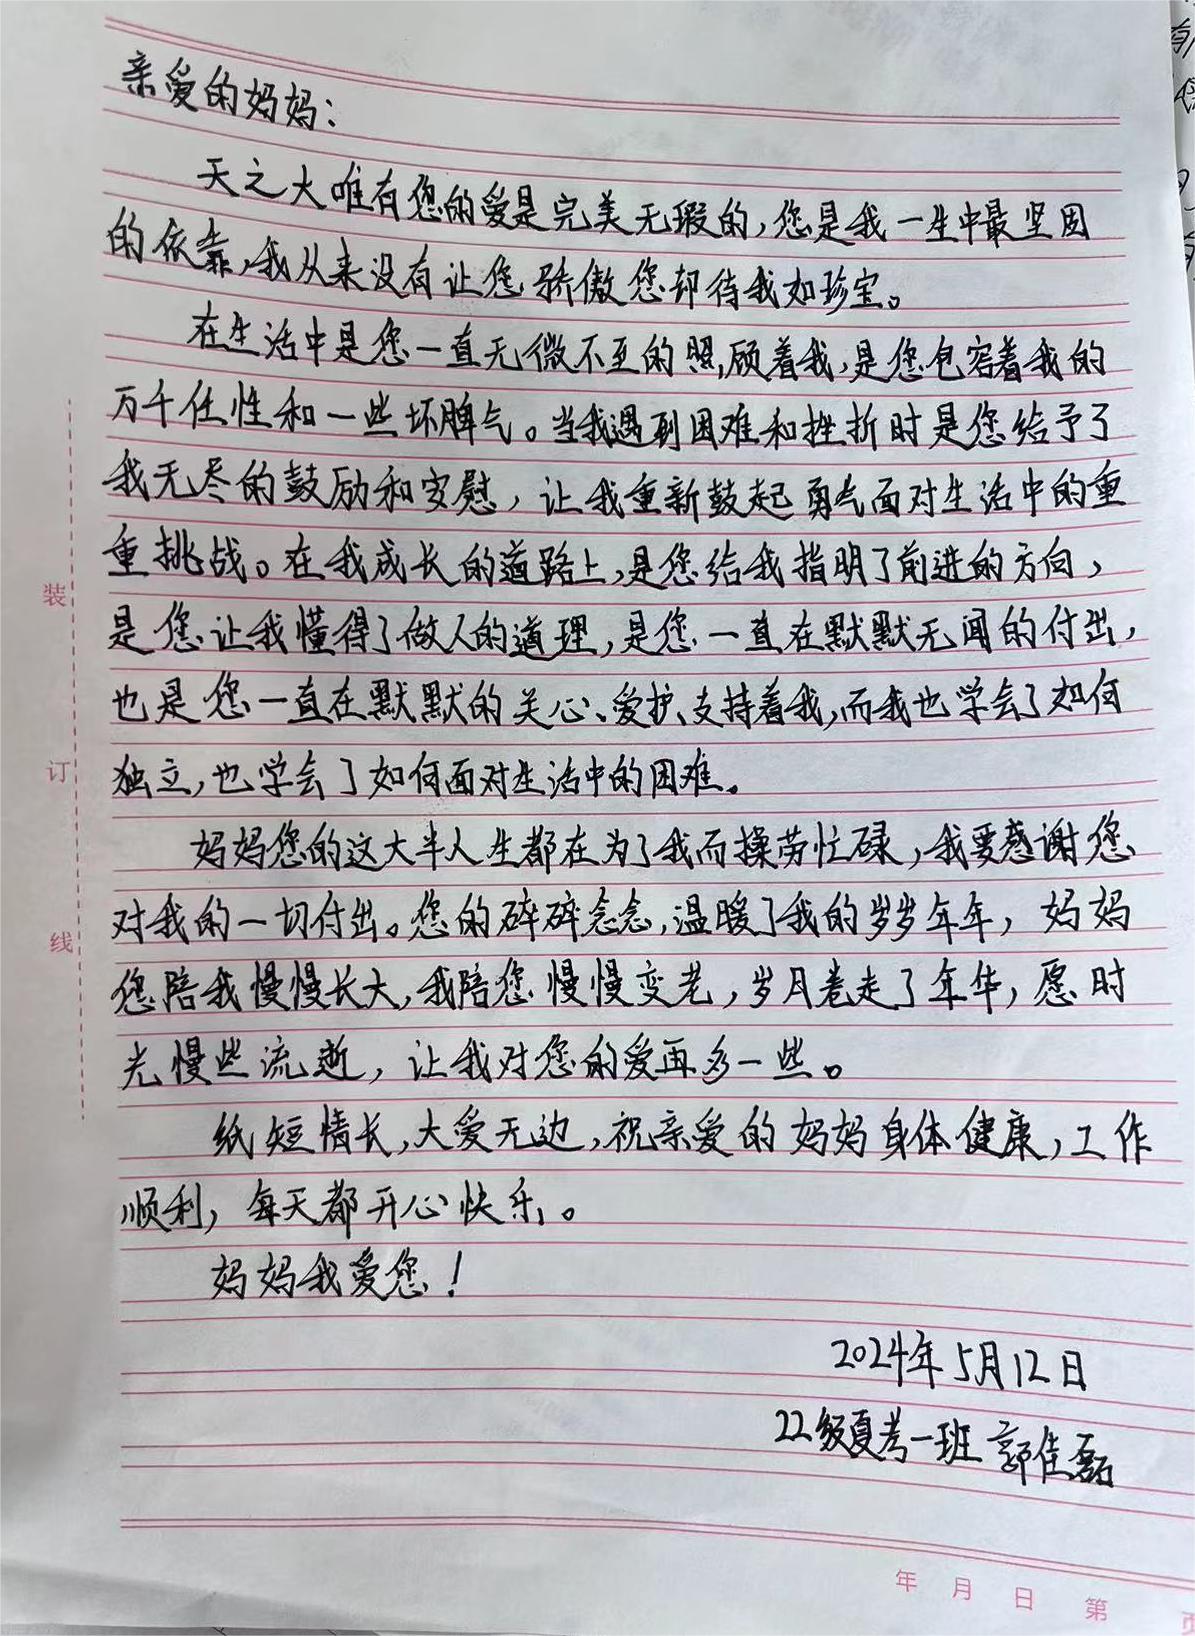 亲爱的妈妈：
天之大唯有您的爱是完美无瑕的，您是我一生中最坚固
的依靠，我从来没有让您骄傲您却待我如珍宝。
在生活中是您一直无微不至的照顾着我，是您包容着我的
万千任性和一些坏脾气。当我遇到困难和挫折时是您给予了
我无尽的鼓励和安慰，让我重新鼓起勇气面对生活中的重
重挑战。在我成长的道路上，是您给我指明了前进的方向，
是您让我懂得了做人的道理，是您一直在默默无闻的付出，
也是您一直在默默的关心、爱护、支持着我，而我也学会了如何
独立，也学会了如何面对生活中的困难。
妈妈您的这大半人生都在为了我而操劳忙碌，我要感谢您
对我的一切付出。您的碎碎念念，温暖了我的岁岁年年，妈妈
您陪我慢慢长大，我陪您慢慢变老，岁月卷走了年华，愿时
光慢些流逝，让我对您的爱再多一些。
纸短情长，大爱无边，祝亲爱的妈妈身体健康，工作
顺利，每天都开心快乐。
妈妈我爱您！
2024年5月12日
22级夏考一班 郭佳磊
装
订
线
年 月 日 第 页